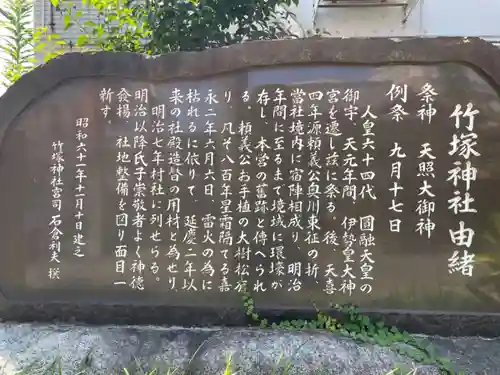 竹塚神社由緒
祭神　天照大御神
例祭　九月十七日
人皇六十四代　圓融天皇の
御宇、天元年間、伊勢皇大神
宮を遷し茲に祭る。後、天喜
四年源頼義公奥川東征の折、
當社境内に宿陣相成り、明治
年間に至るまで境域に環壕が
存し、本営の舊跡と傳へられ
る。頼義公お手植の大樹松が有
り、凡そ八百年星霜隔てる嘉
永二年六月六日、雷火の為に
枯れるに依りて、延慶二年以
来の社殿造営の用材と為せり
明治七年村社に列せらる。
明治以降氏子崇敬者よく神徳
發揚、社地整備を図り面目一
新す。
昭和六十一年十一月十日建之
竹塚神社宮司　石倉利夫　撰